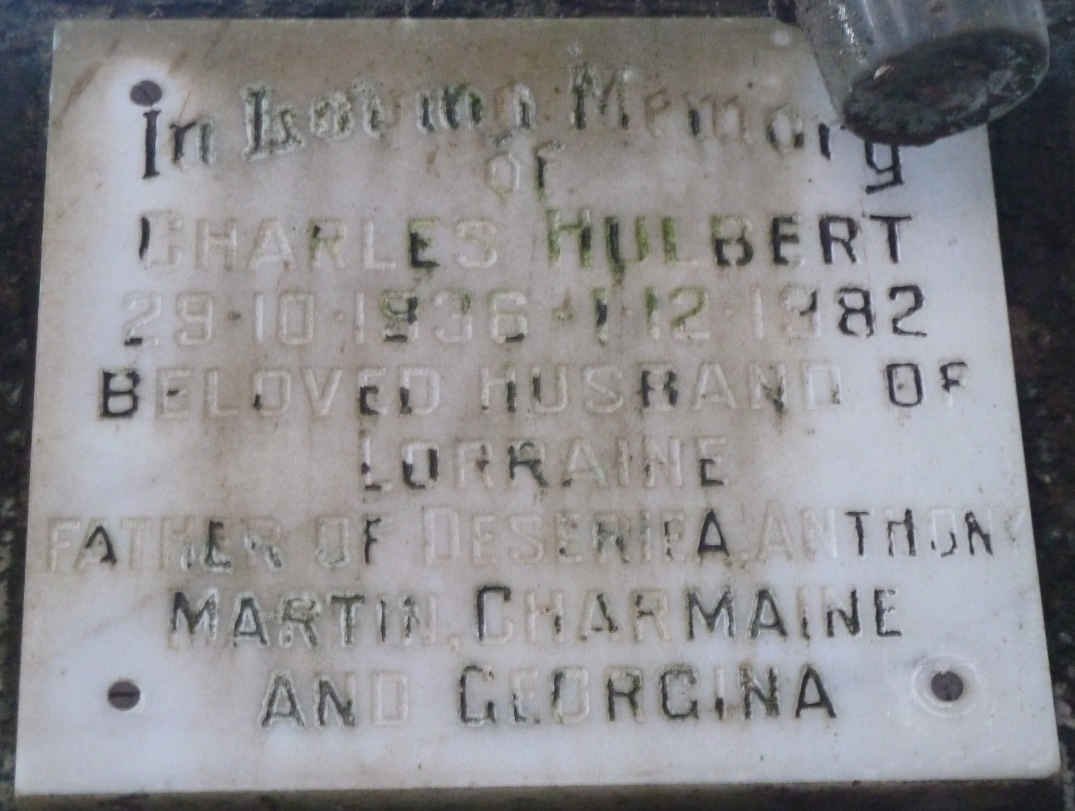 In Loving Memory
of
CHARLES HULBERT
29·10·1936 · 1·12·1982
BELOVED HUSBAND OF
LORRAINE
FATHER OF ANTHONY
MARTIN, CHARMAINE
AND GEORGINA